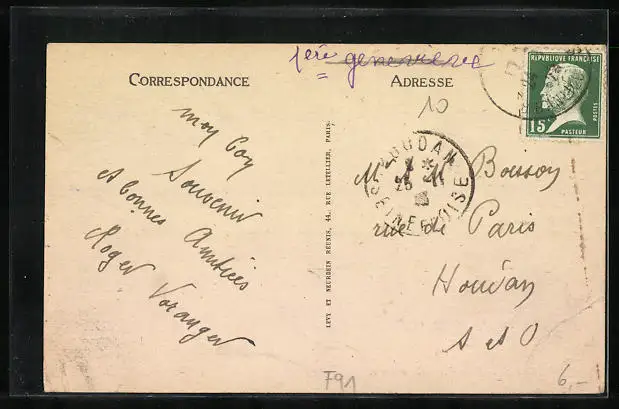 1ère geneviève
CORRESPONDANCE
ADRESSE
RÉPUBLIQUE FRANÇAISE
POSTES
15c
PASTEUR
10
HOUDAN
SEINE ET OISE
mon Coy
Souvenir
et bonnes Amitiés
Roger Voranger
M. Bousson
rue de Paris
Houdan
S et O
LEVY ET NEURDEIN RÉUNIS, 44, RUE LETELLIER, PARIS
F91
6,-